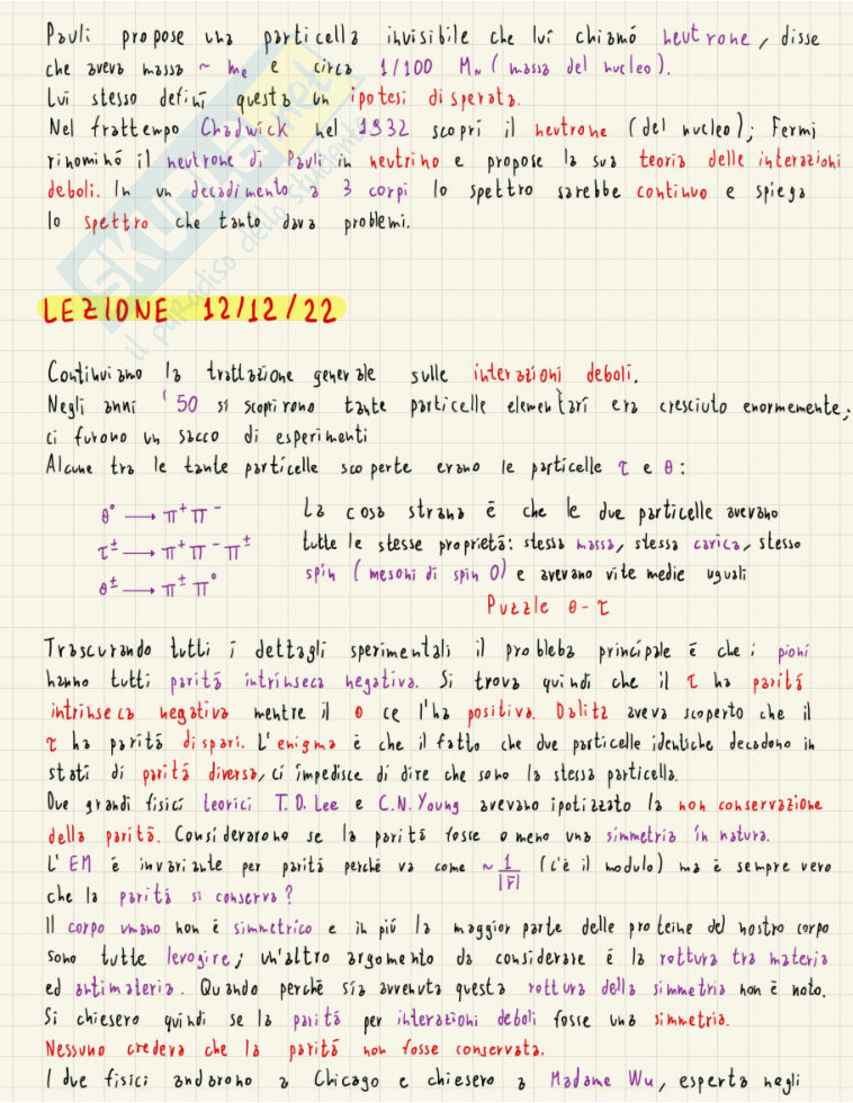 Pauli propose una particella invisibile che lui chiamó neutrone, disse
che aveva massa ~ me e circa 1/100 MN (massa del nucleo).
Lui stesso definí questa un ipotesi disperata.
Nel frattempo Chadwick nel 1932 scoprí il neutrone (del nucleo); Fermi
rinominó il neutrone di Pauli in neutrino e propose la sua teoria delle interazioni
deboli. In un decadimento a 3 corpi lo spettro sarebbe continuo e spiega
lo spettro che tanto dava problemi.
LEZIONE 12/12/22
Continuiamo la trattazione generale sulle interazioni deboli.
Negli anni '50 si scoprirono tante particelle elementari era cresciuto enormemente;
ci furono un sacco di esperimenti
Alcune tra le tante particelle scoperte erano le particelle τ e θ:
θ° → π⁺π⁻
τ± → π⁺π⁻π±
θ± → π±π°
La cosa strana é che le due particelle avevano
tutte le stesse proprietá: stessa massa, stessa carica, stesso
spin (mesoni di spin 0) e avevano vite medie uguali
Puzzle θ-τ
Trascurando tutti i dettagli sperimentali il probleba principale é che i pioni
hanno tutti paritá intrinseca negativa. Si trova quindi che il τ ha paritá
intrinseca negativa mentre il θ ce l'ha positiva. Dalitz aveva scoperto che il
τ ha paritá dispari. L'enigma é che il fatto che due particelle identiche decadono in
stati di paritá diversa, ci impedisce di dire che sono la stessa particella.
Due grandi fisici teorici T.D. Lee e C.N. Young avevano ipotizzato la non conservazione
della paritá. Considerarono se la paritá fosse o meno una simmetria in natura.
L'EM é invariante per paritá perché va come ~ 1/|r̄| (c'é il modulo) ma é sempre vero
che la paritá si conserva?
Il corpo umano non é simmetrico e in piú la maggior parte delle proteine del nostro corpo
sono tutte levogire; un'altro argomento da considerare é la rottura tra materia
ed antimateria. Quando perché sia avvenuta questa rottura della simmetria non é noto.
Si chiesero quindi se la paritá per interazioni deboli fosse una simmetria.
Nessuno credeva che la paritá non fosse conservata.
I due fisici andarono a Chicago e chiesero a Madame Wu, esperta negli
SKUOLA.net
il paradiso dello studente